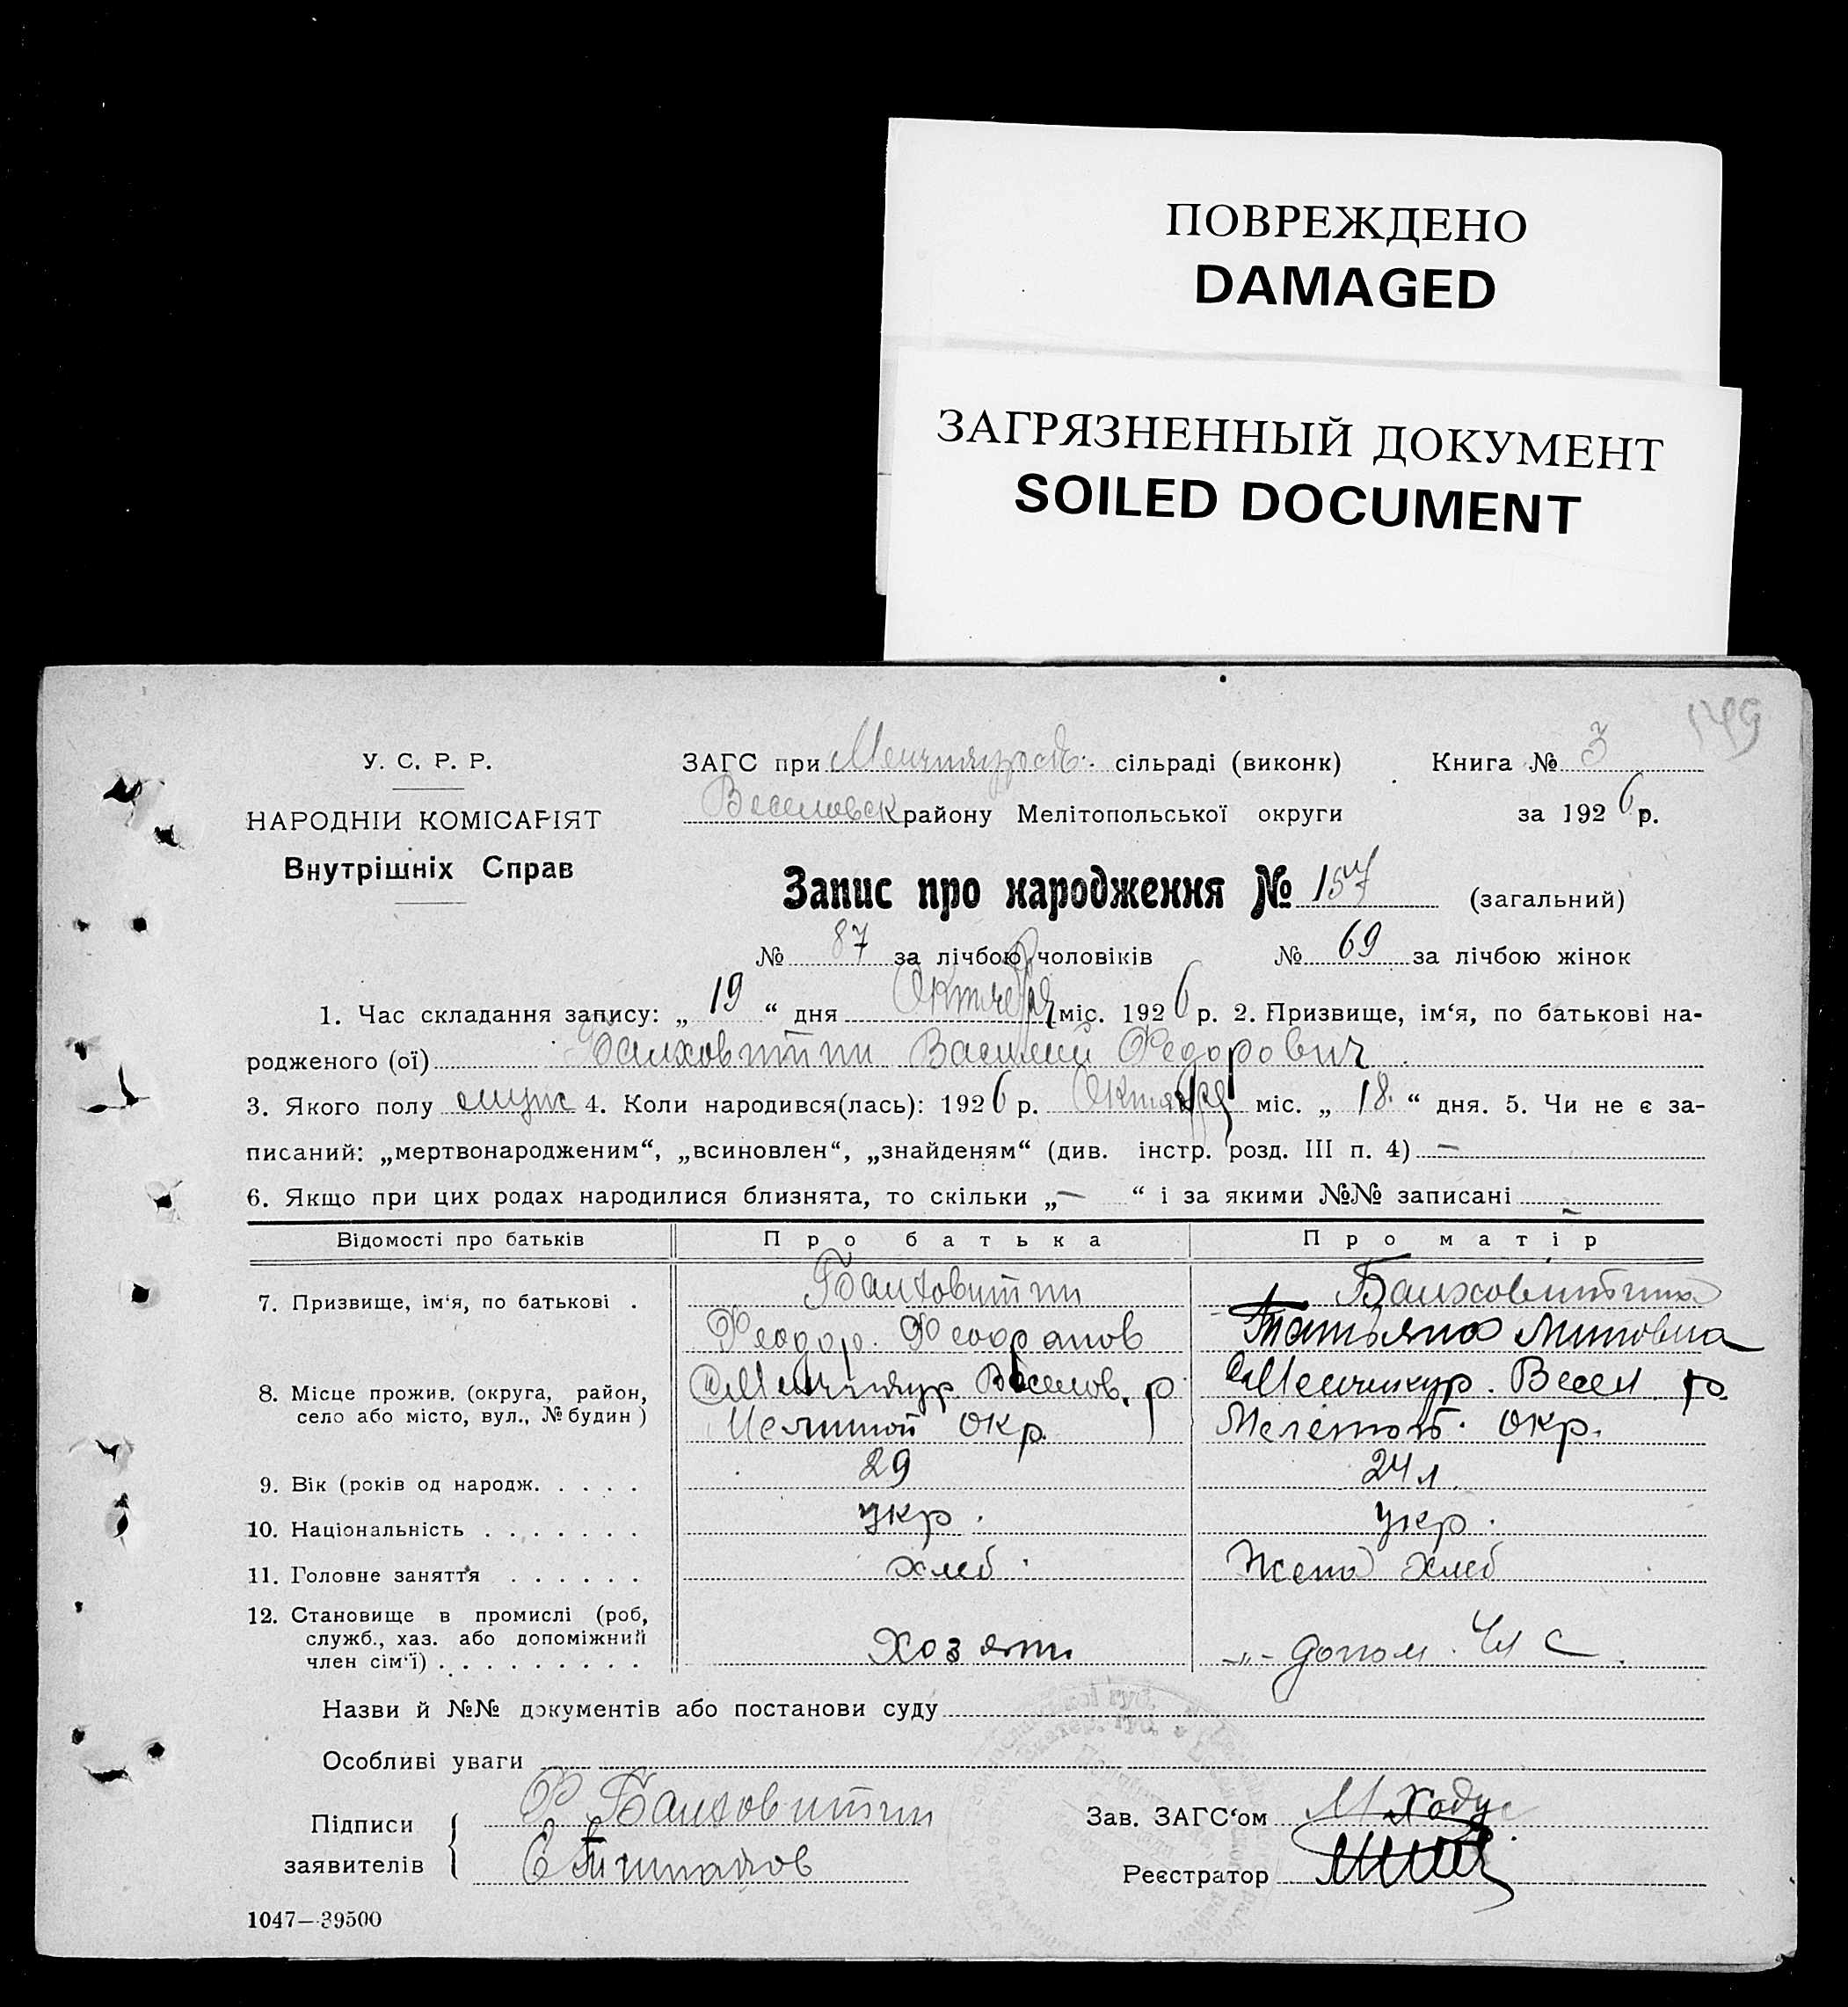 ПОВРЕЖДЕНО
DAMAGED
ЗАГРЯЗНЕННЫЙ ДОКУМЕНТ
SOILED DOCUMENT
149
У. С. Р. Р.
НАРОДНІЙ КОМІСАРІЯТ
Внутрішніх Справ
ЗАГС при сільраді (виконк) Книга № 3
Веселовск району Мелітопольської округи за 1926 р.
Запис про народження № 157 (загальний)
№ 87 за лічбою чоловіків № 69 за лічбою жінок
1. Час складання запису: „ 19 “ дня Октября міс. 1926 р. 2. Призвище, ім‘я, по батькові на-
родженого (ої) Балховитин Василий Федорович
3. Якого полу муж 4. Коли народився(лась): 1926 р. Октября міс. „ 18. “ дня. 5. Чи не є за-
писаний: „мертвонародженим“, „всиновлен“, „знайденям“ (див. інстр. розд. III п. 4) —
6. Якщо при цих родах народилися близнята, то скільки „— “ і за якими №№ записані —
Відомості про батьків Про батька Про матір
7. Призвище, ім‘я, по батькові . Балховитин Балховитина
Феодор. Татьяна
8. Місце прожив. (округа, район, Веселов. р. Весел. р.
село або місто, вул., № будин ) окр. Мелетоп. окр.
9. Вік (років од народж. . . . . 29 24 л.
10. Національність . . . . . . . укр. укр.
11. Головне заняття . . . . . . хлеб. Жена хлеб
12. Становище в промислі (роб,
служб., хаз. або допоміжний
член сім‘ї) . . . . . . . . . Хозяин -„- допом. Чл С.
Назви й №№ документів або постанови суду
Особливі уваги
Підписи Ф Балховитин Зав. ЗАГС‘ом М Ходус
заявителів Реєстратор
1047—39500